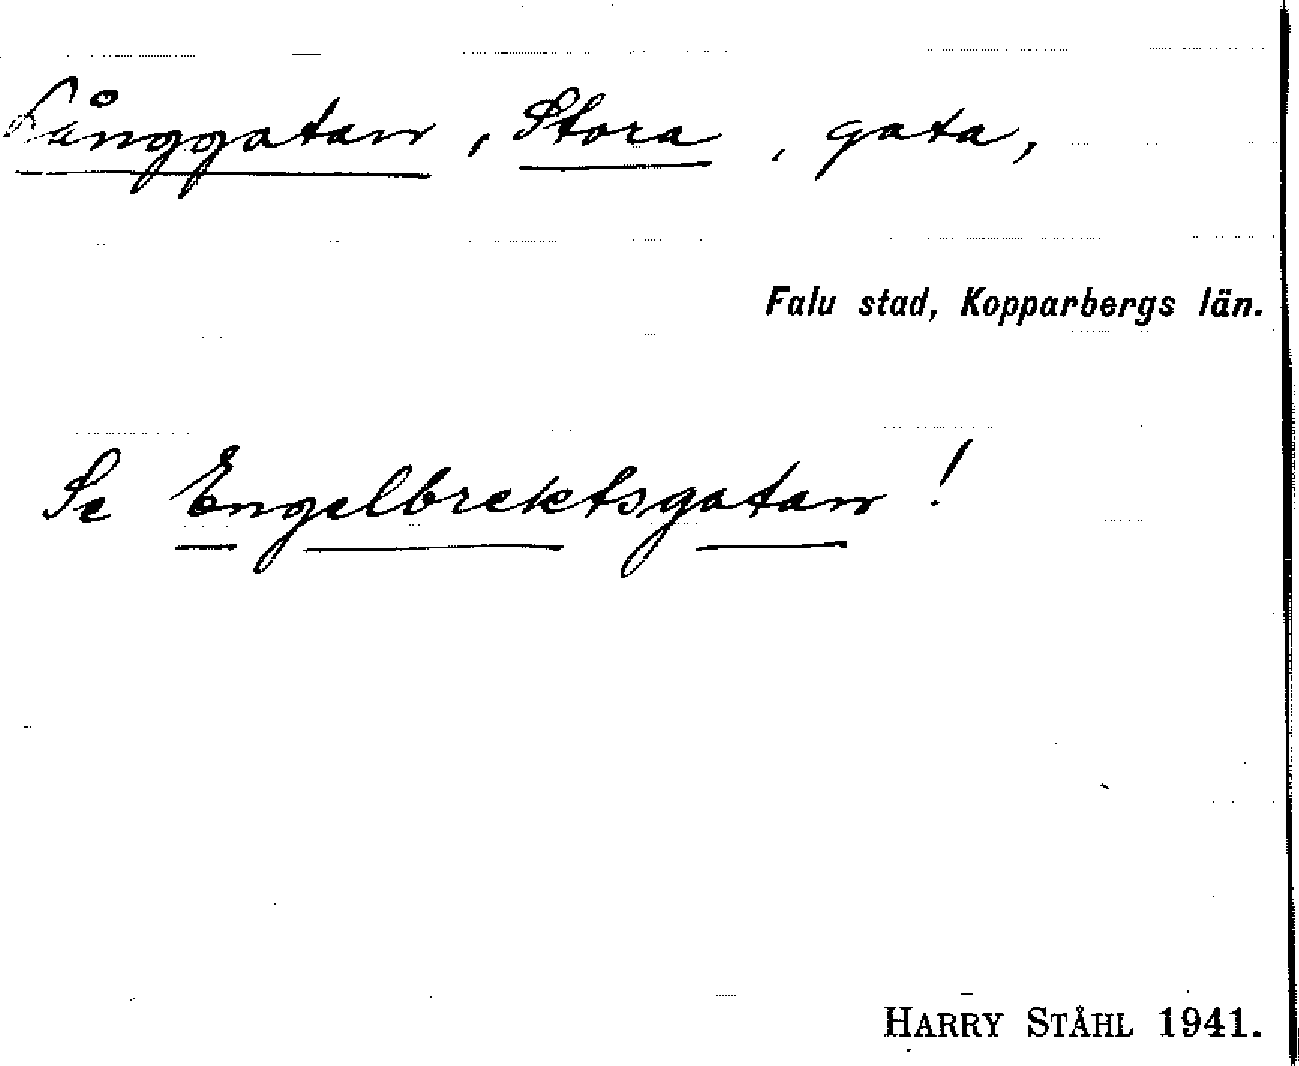 Långgatan, Stora, gata,
Falu stad, Kopparbergs län.
Se Engelbrektsgatan!
HARRY STÅHL 1941.